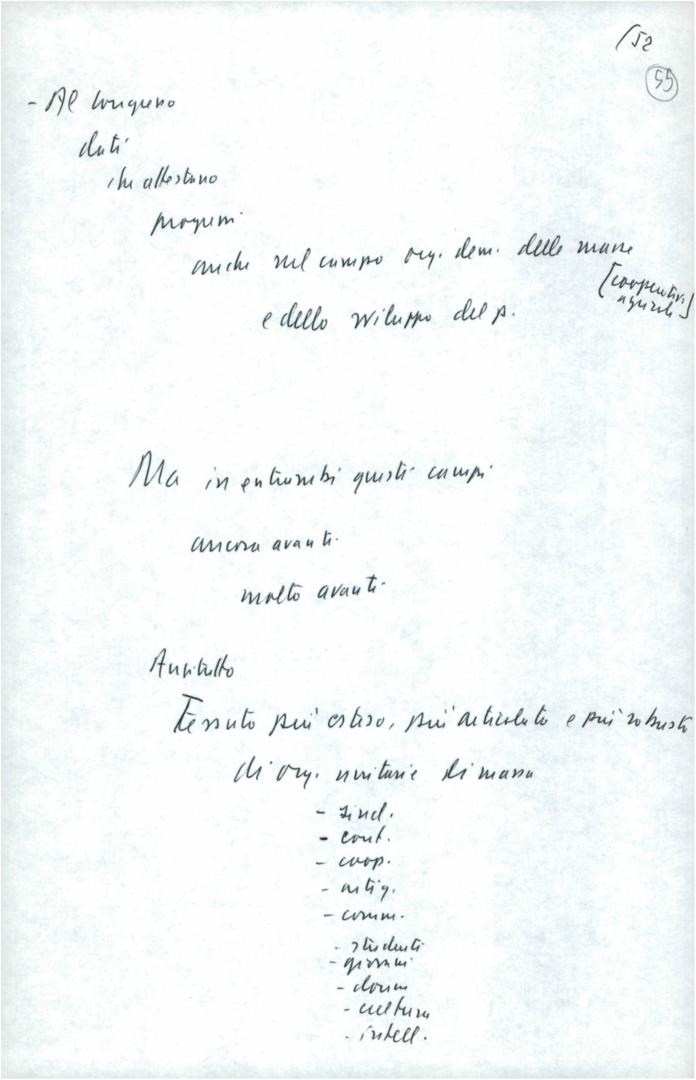 /52
55
- Al Congresso
dati
che attestano
progressi
anche nel campo org. dem. delle masse
[cooperative
agricole]
e dello sviluppo del p.
Ma in entrambi questi campi
ancora avanti
molto avanti
Anzitutto
Tessuto più esteso, più articolato e più robusto
di org. unitarie di massa
- sind.
- cont.
- coop.
- artig.
- comm.
- studenti
- giovani
- donne
- cultura
- intell.